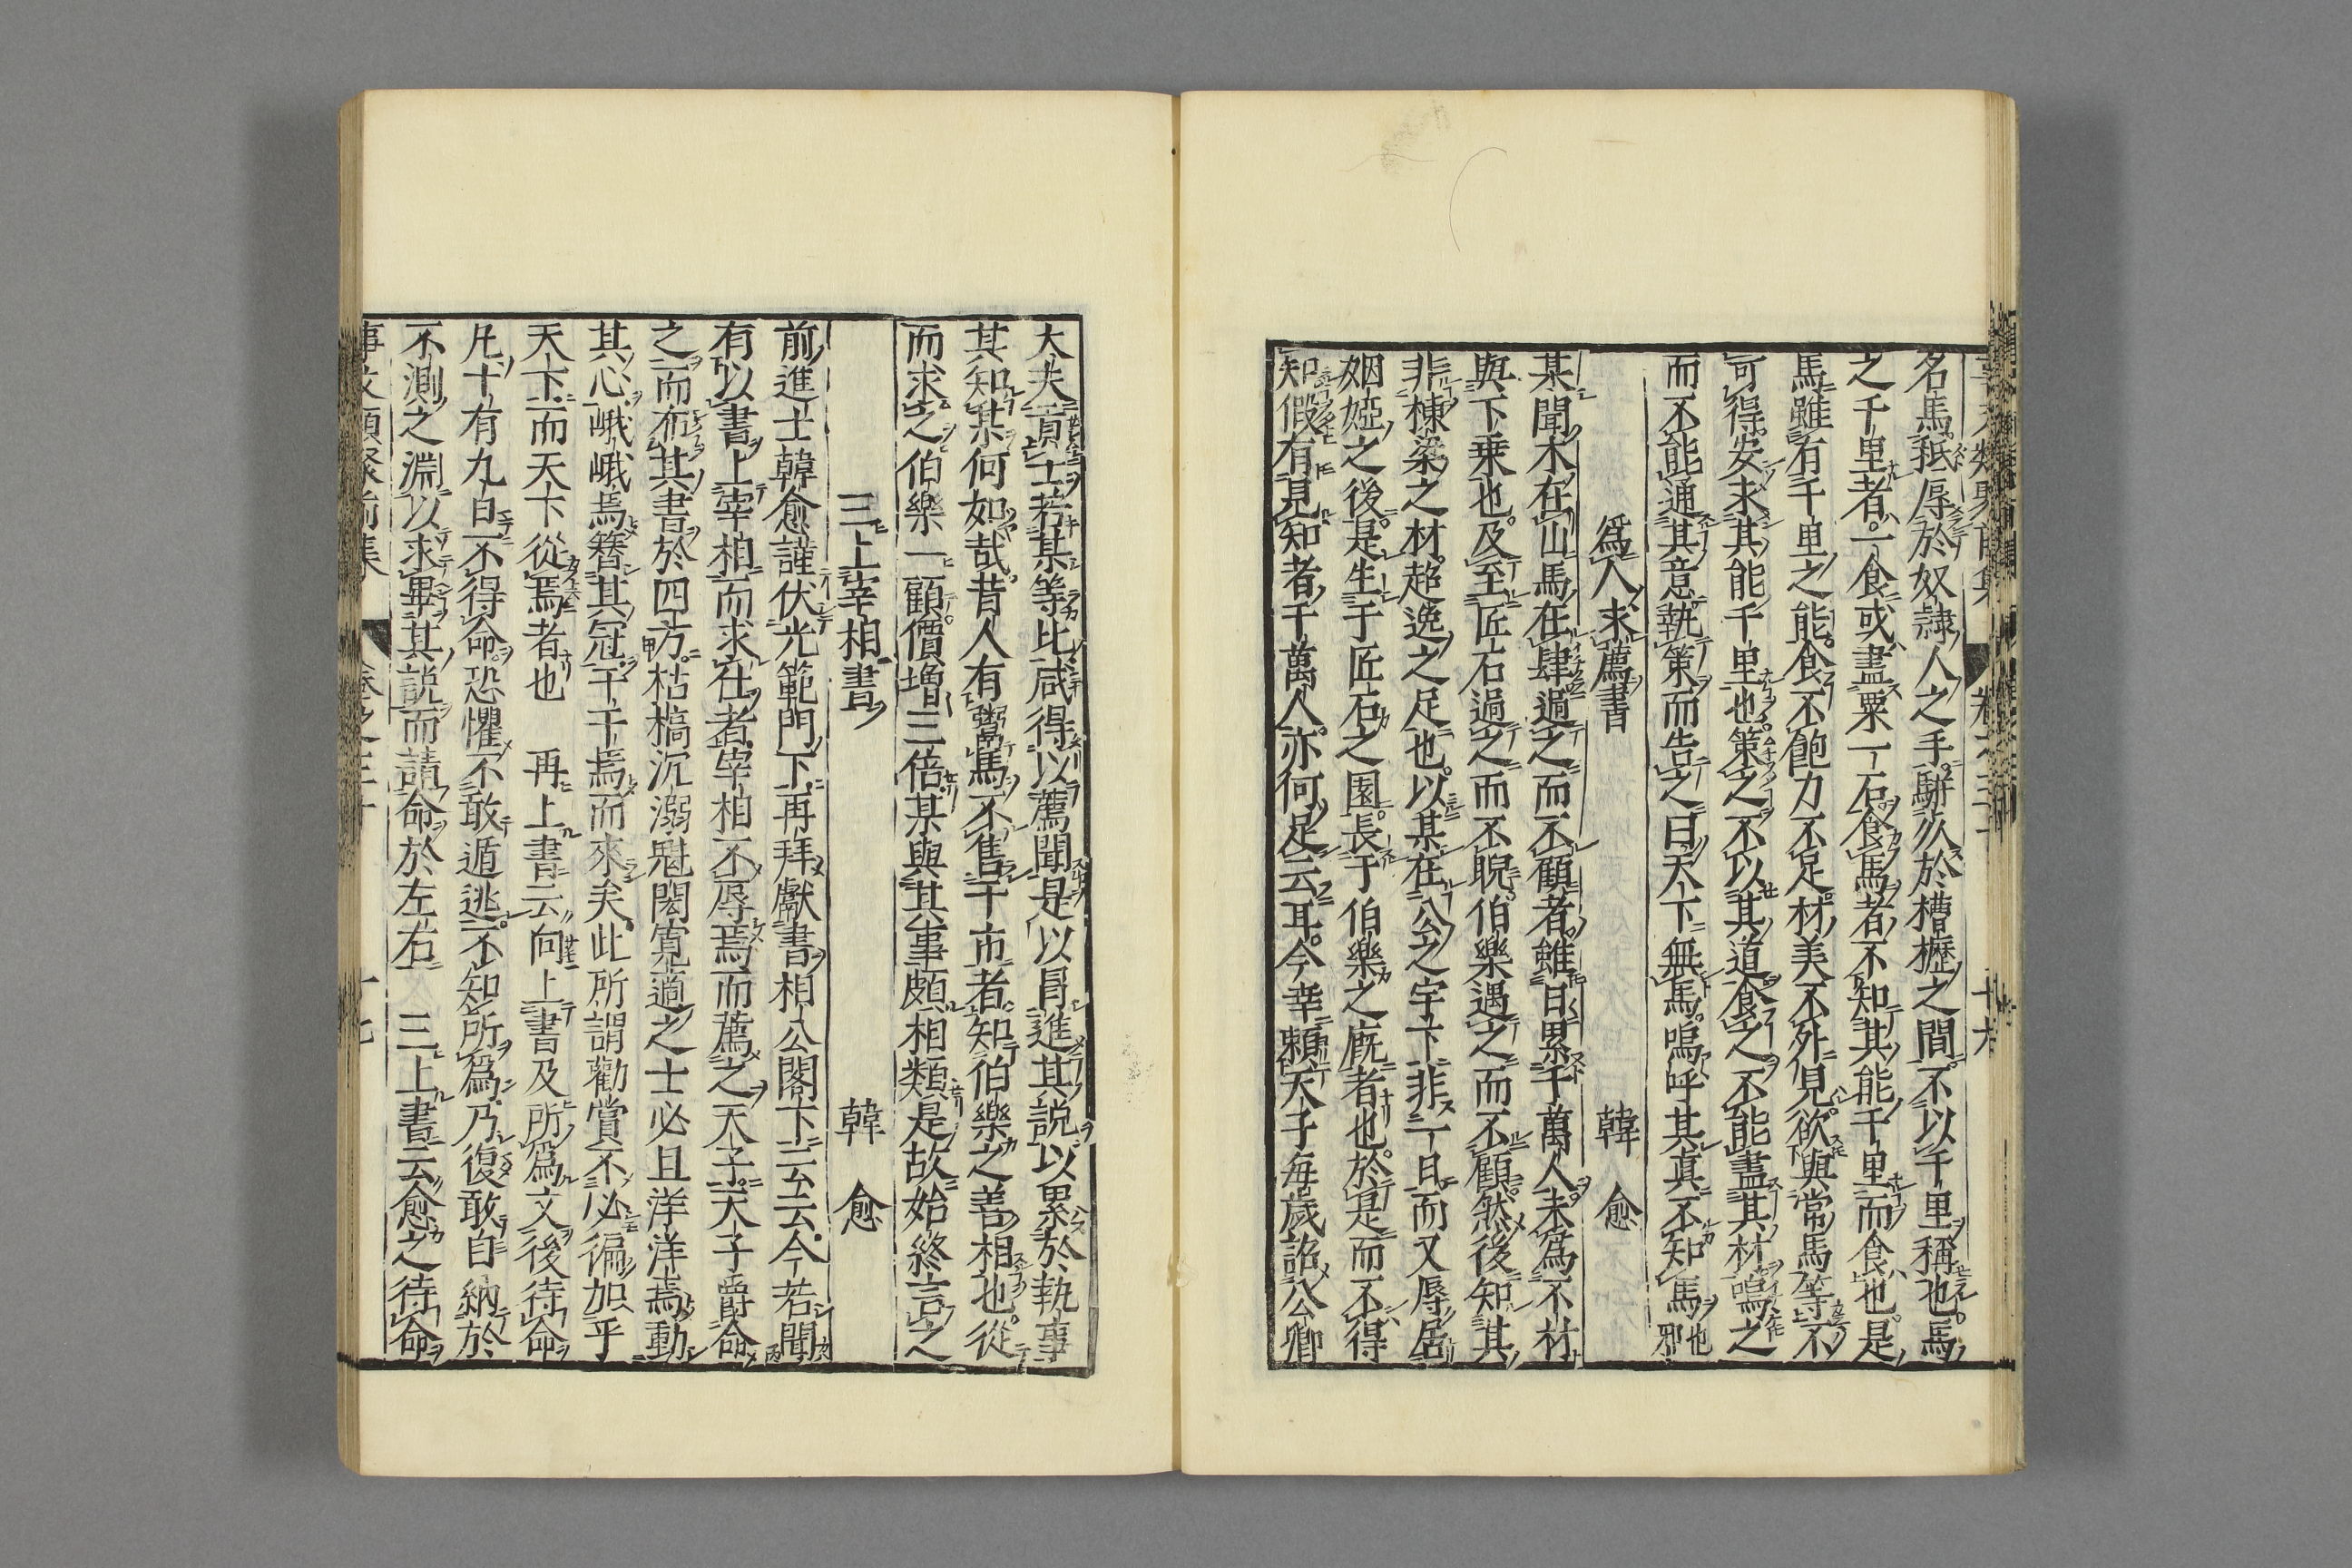 名馬秖辱於奴隷人之手駢死於槽櫪之間不以千里稱也馬
之千里者一食或盡粟一石食馬者不知其能千里而食也是
馬雖有千里之能食不飽力不足材美不外見欲與常馬等不
可得安求其能千里也策之不以其道食之不能盡其材鳴之
而不能通其意執策而告之曰天下無馬嗚呼其眞不知馬也邪
爲人求薦書　韓愈
某聞木在山馬在肆過之而不顧者雖日累千萬人未爲不材
與下乗也及至匠石過之而不睨伯樂遇之而不顧然後知其
非棟梁之材超逸之足也以某在公之宇下非一日而又辱居
姻婭之後是生于匠石之園長于伯樂之厩者也於是而不得
知假有見知者千萬人亦何足云耳今幸頼天子毎歳詔公卿
大夫貢士若某等比咸得以薦聞是以冐進其説以累於執事
其知某何如哉昔人有鬻馬不售于市者知伯樂之善相也從
而求之伯樂一顧價増三倍某與其事頗相類是故始終言之
三上宰相書　韓愈
前進士韓愈謹伏光範門下再拜獻書相公閤下云云今若聞
有以書上宰相而求在者宰相不辱焉而薦之天子天子爵命
之而布其書於四方枯槁沉溺魁閎寛適之士必且洋洋焉動
其心峨峨焉簪其冠于于焉而來矣此所謂勸賞不必徧加乎
天下而天下從焉者也　再上書云向上書及所爲文後待命
凡十有九日不得命恐懼不敢遁逃不知所爲乃復敢自納於
不測之淵以求畢其説而請命於左右　三上書云愈之待命
事文類聚前集　卷之三十　十七